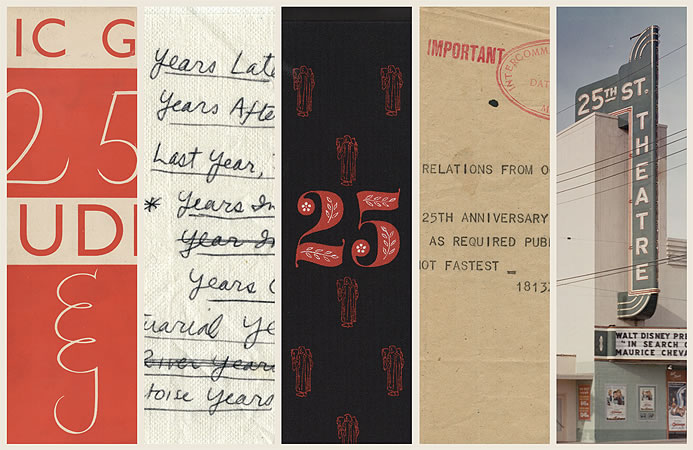 IC G
25
UD
Years Late
Years Afte
Last Year,
* Years In
Year In
Years
uarial Ye
Years
toise Years
25
IMPORTANT
INTERCOMM
DAT
RELATIONS FROM O
25TH ANNIVERSARY
AS REQUIRED PUB
OT FASTEST _
1813
25TH ST.
THEATRE
WALT DISNEY PR
"IN SEARCH O
MAURICE CHEVA